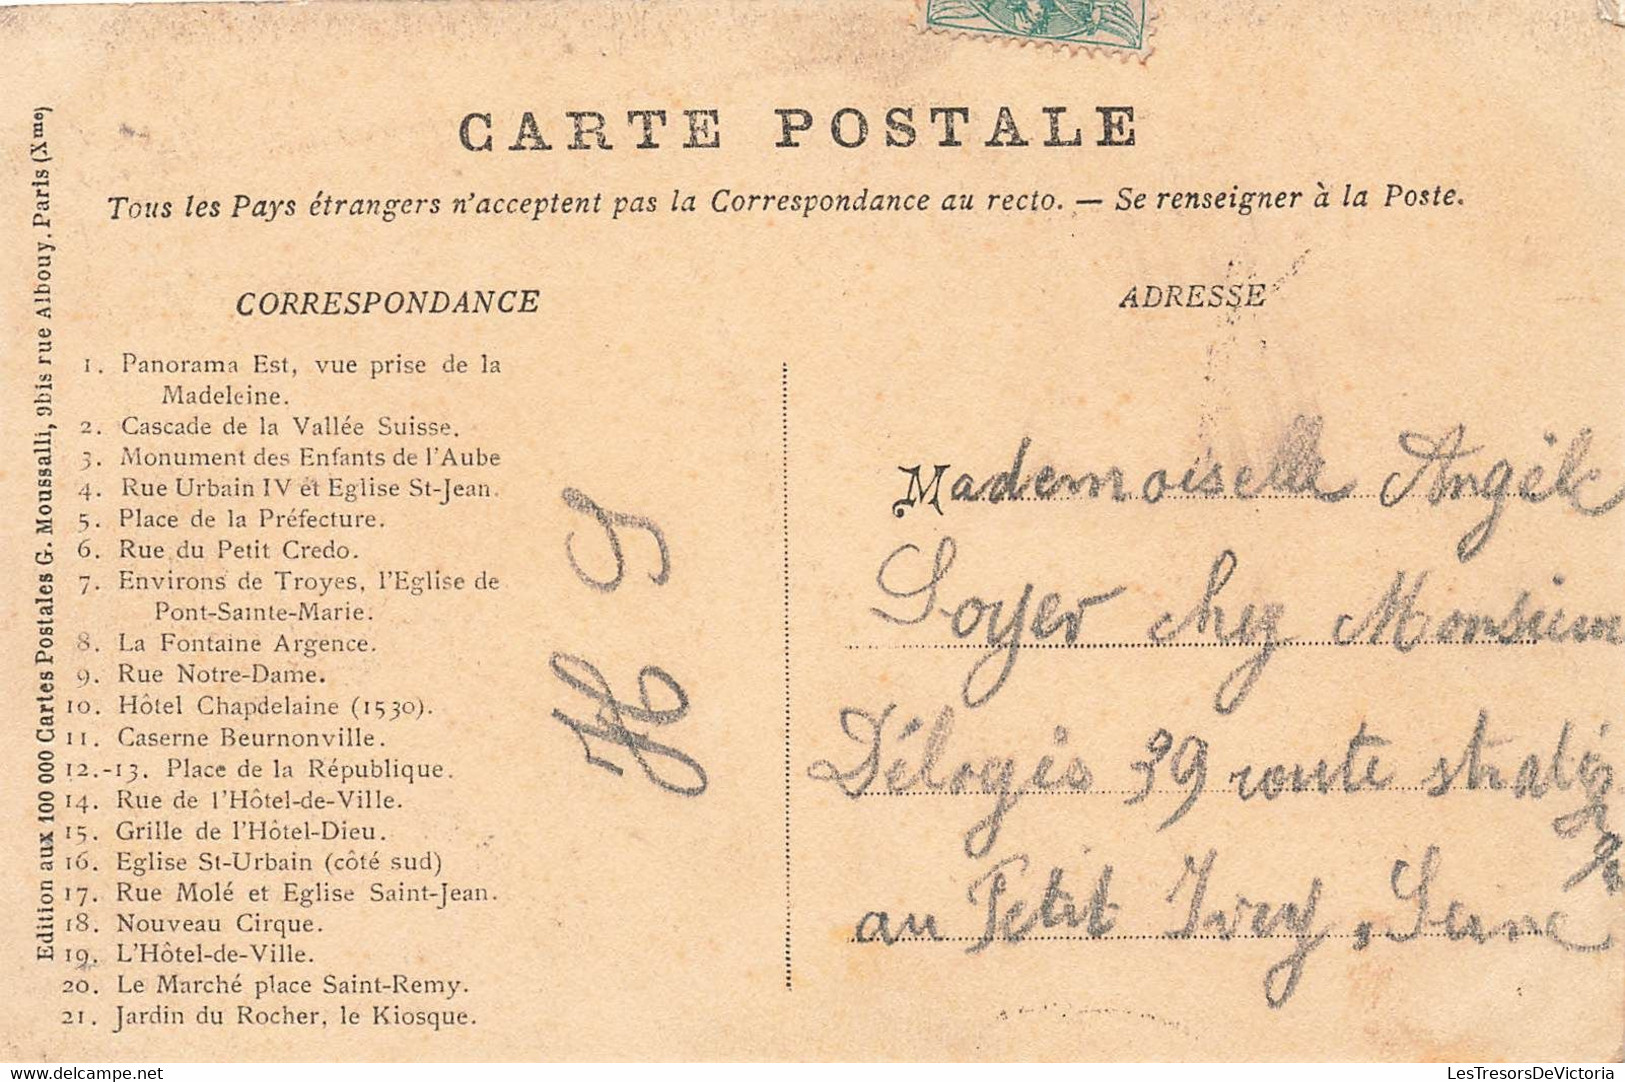 CARTE POSTALE
Tous les Pays étrangers n'acceptent pas la Correspondance au recto. — Se renseigner à la Poste.
Edition aux 100 000 Cartes Postales G. Moussalli, 9bis rue Albouy. Paris (Xme)
CORRESPONDANCE
1. Panorama Est, vue prise de la
Madeleine.
2. Cascade de la Vallée Suisse.
3. Monument des Enfants de l'Aube
4. Rue Urbain IV et Eglise St-Jean.
5. Place de la Préfecture.
6. Rue du Petit Credo.
7. Environs de Troyes, l'Eglise de
Pont-Sainte-Marie.
8. La Fontaine Argence.
9. Rue Notre-Dame.
10. Hôtel Chapdelaine (1530).
11. Caserne Beurnonville.
12.-13. Place de la République.
14. Rue de l'Hôtel-de-Ville.
15. Grille de l'Hôtel-Dieu.
16. Eglise St-Urbain (côté sud)
17. Rue Molé et Eglise Saint-Jean.
18. Nouveau Cirque.
19. L'Hôtel-de-Ville.
20. Le Marché place Saint-Remy.
21. Jardin du Rocher, le Kiosque.
ADRESSE
Mademoiselle Angèle
Soyer chez Monsieur
Délogis 39 route
au Petit Ivry, Seine
www.delcampe.net
LesTresorsDeVictoria